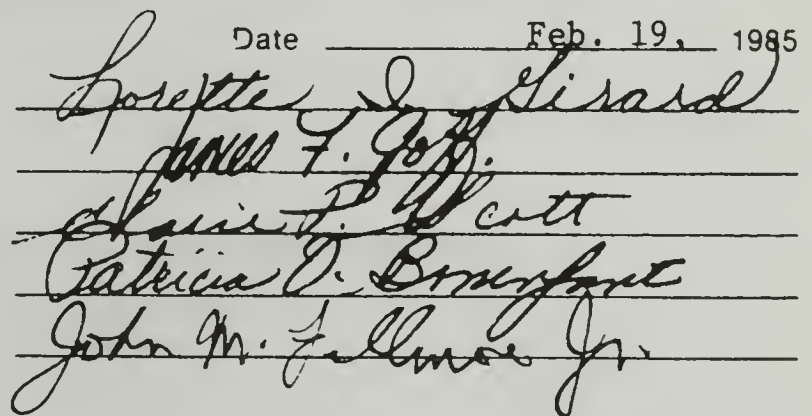 Date Feb. 19, 1985
Lorette I. Girard
James F. Goff.
P. Scott
Patricia O. Bonenfant
John M. Fillmore Jr.